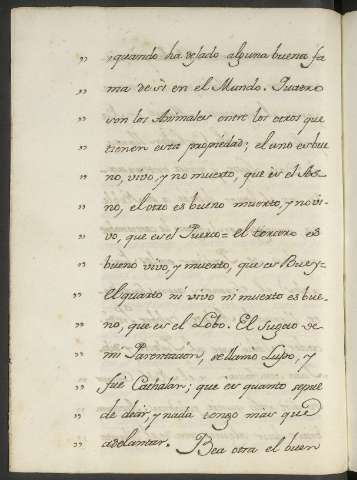 " quando ha dejado alguna buena fa
" ma de sì en el Mundo. Quatro
" son los Animales entre los otros que
" tienen esta propiedad; el uno es bue
" no, vivo, y no muerto, que es el As-
" no, el otro es bueno muerto, y no vi-
" vo, que es el Puerco = el tercero es
" bueno vivo, y muerto, que es Buey =
" el quarto ni vivo ni muerto es bue-
" no, que es el Lobo. El sugeto de
" mi Parentacion, se llamò Lupo, y
" fuè Cathalan; que es quanto se puede
" de decir, y nada tengo mas que
" adelantar. Bea otra el buen